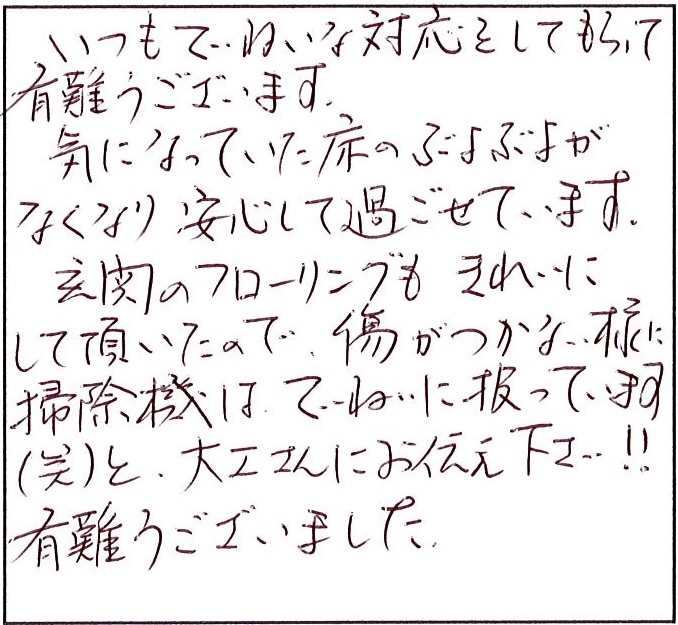 いつもていねいな対応をしてもらって
有難うございます。
気になっていた床のぶよぶよが
なくなり 安心して過ごせています。
玄関のフローリングも きれいに
して頂いたので、傷がつかない様に
掃除機は ていねいに扱っています
(笑)と、大工さんにお伝え下さい!!
有難うございました。